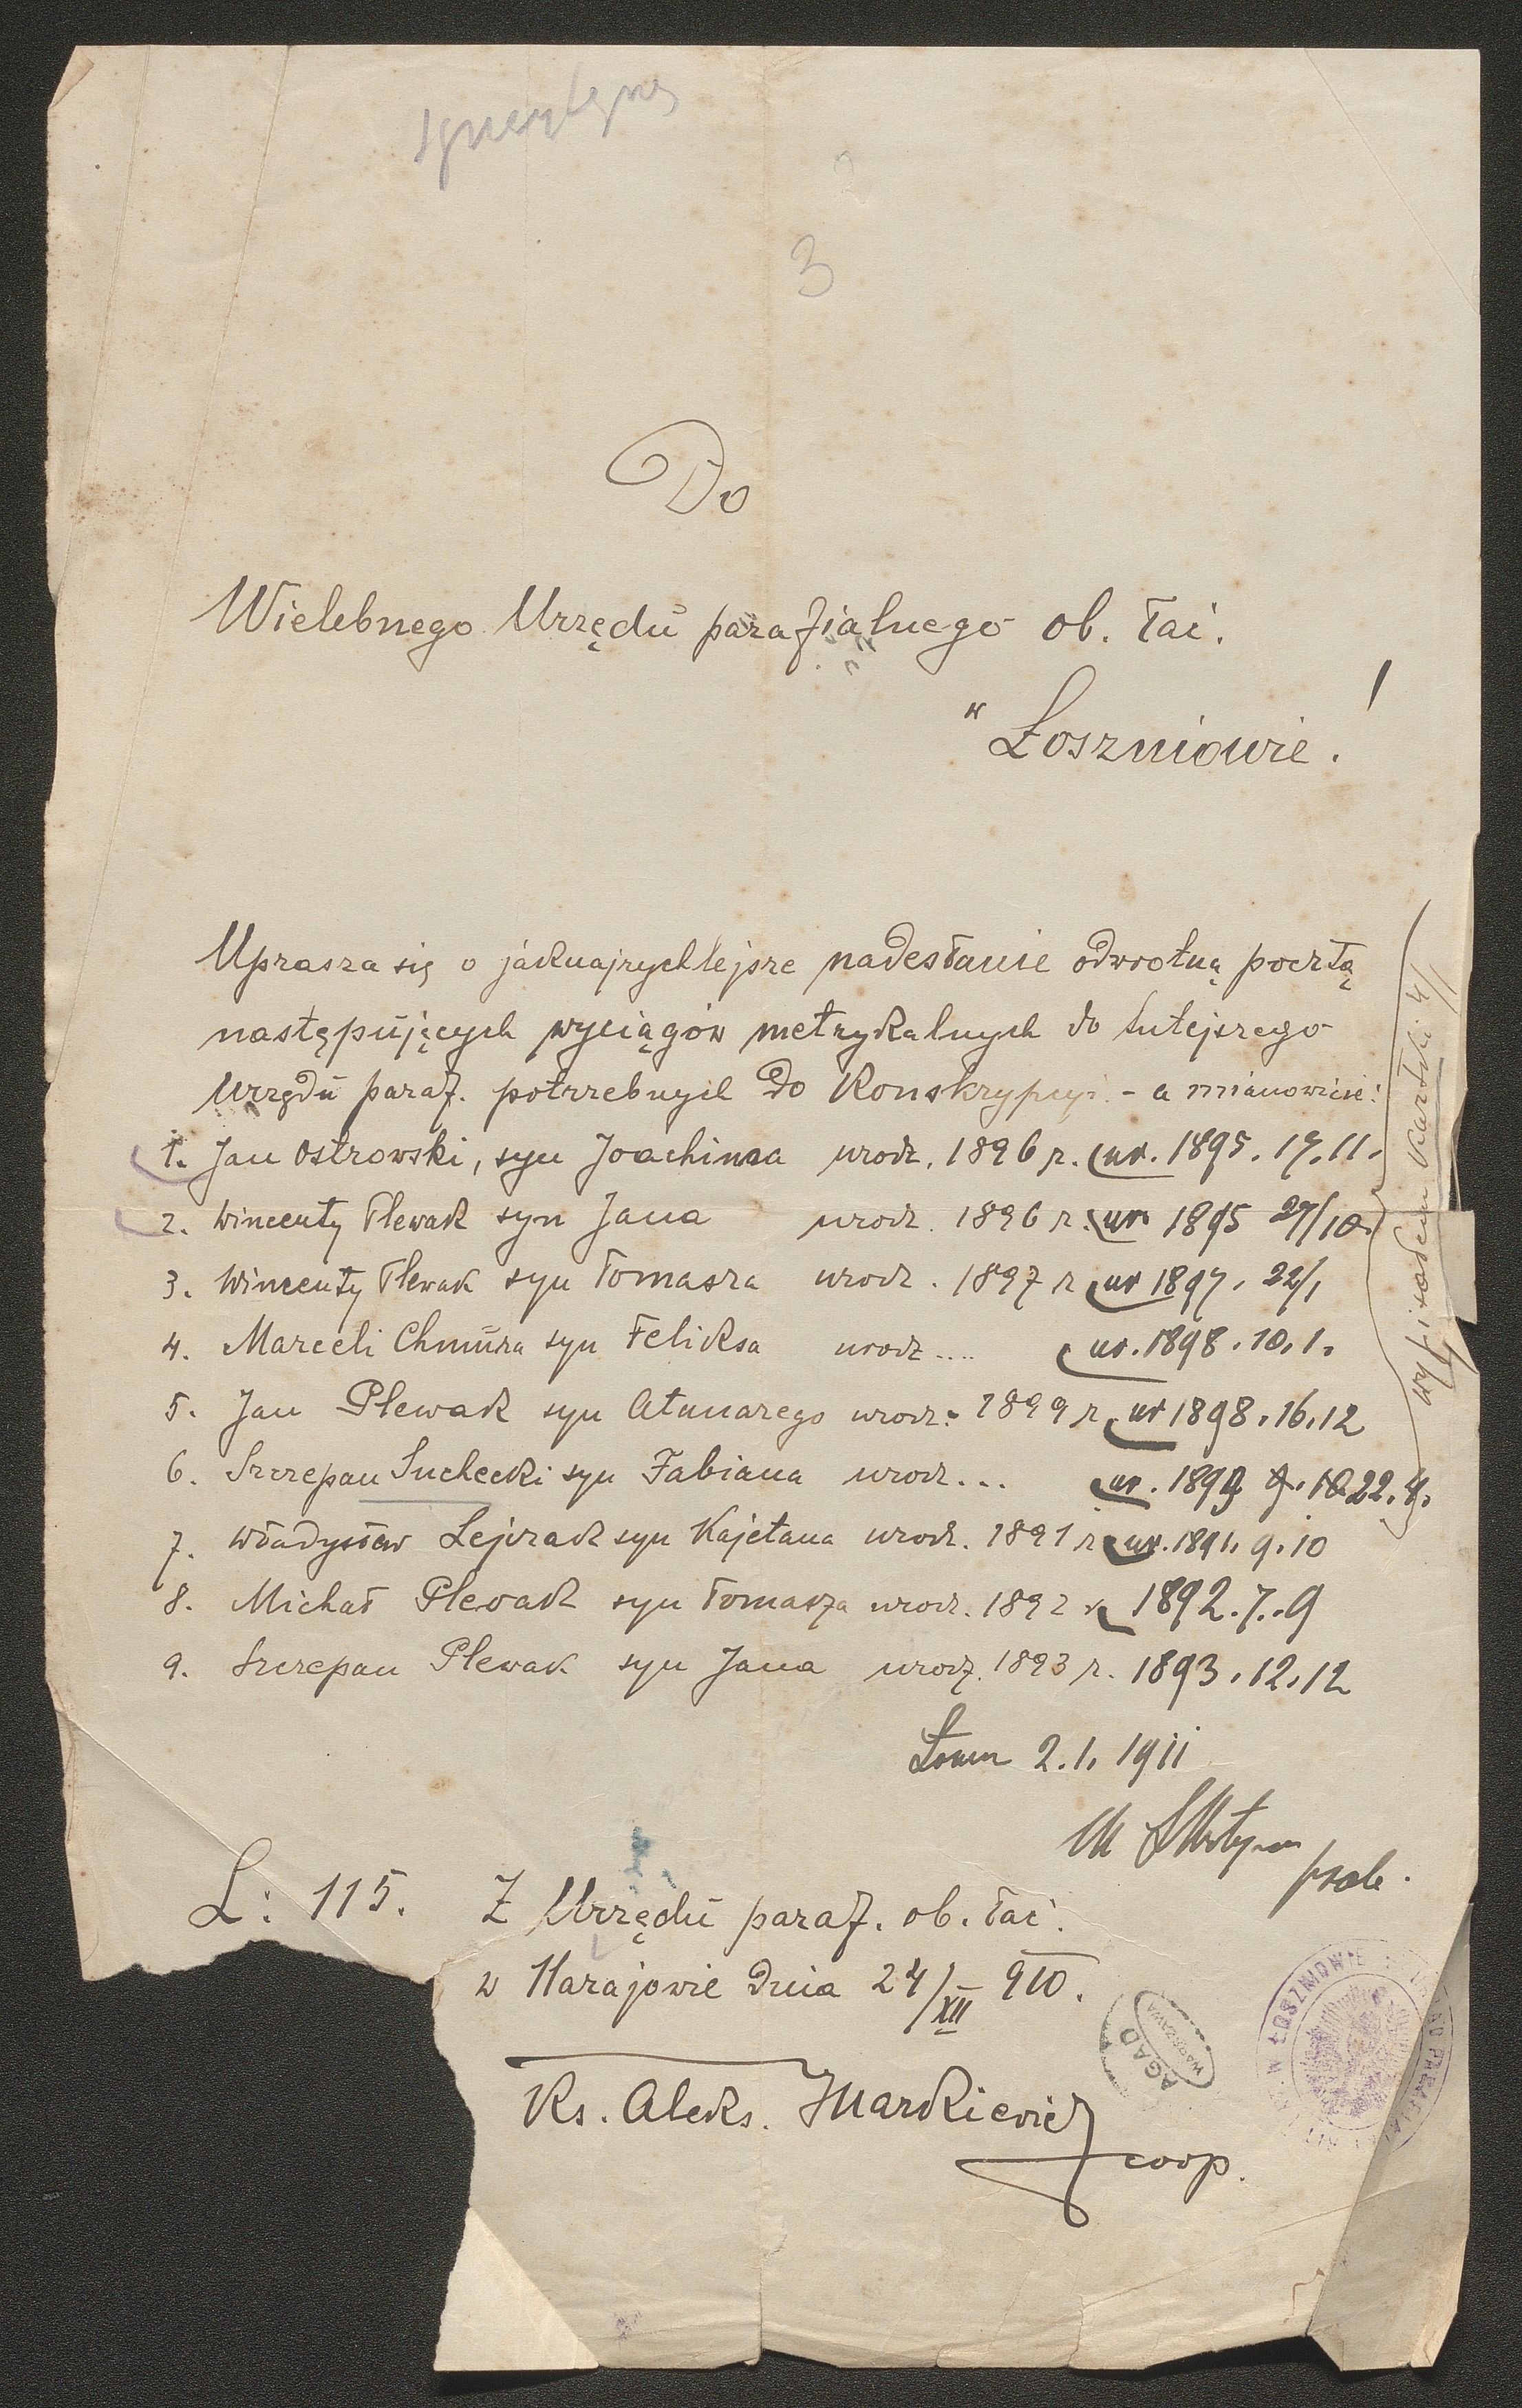 3
Do
Wielebnego Urzędu parafialnego ob. łać.
w Łoszniowie!
Uprasza się o jaknajrychlejsze nadesłanie odwrotną pocztą
następujących wyciągów metrykalnych do tutejszego
Urzędu paraf. potrzebnych do Konskrypcyi - a mianowicie:
1. Jan Ostrowski, syn Joachima urodz. 1896 r. ur. 1895. 17.11.
2. Wincenty Plewak syn Jana urodz. 1896 r. ur 1895 27/10.
3. Wincenty Plewak syn Tomasza urodz. 1897 r ur 1897. 22/1
4. Marceli Chmura syn Feliksa urodz.... ur. 1898. 10.1.
5. Jan Plewak syn urodz. 1899 r. ur 1898. 16.12
6. Szczepan Suchecki syn Fabiana urodz... ur. 22.4.
7. Władysław Lejczak syn Kajetana urodz. 1891 r ur. 1891. 9.10
8. Michał Plewak syn Tomasza urodz. 1892 r 1892.7.9
9. Szczepan Plewak syn Jana urodz. 1893 r. 1893.12.12
wypisałem kartki 4/1
2.1. 1911
prob.
L: 115. Z Urzędu paraf. ob. łać.
w Narajowie dnia 24/XII 910.
Ks. Aleks. Markiewicz
coop.
AGAD
WARSZAWA
W ŁOSZNIOWIE